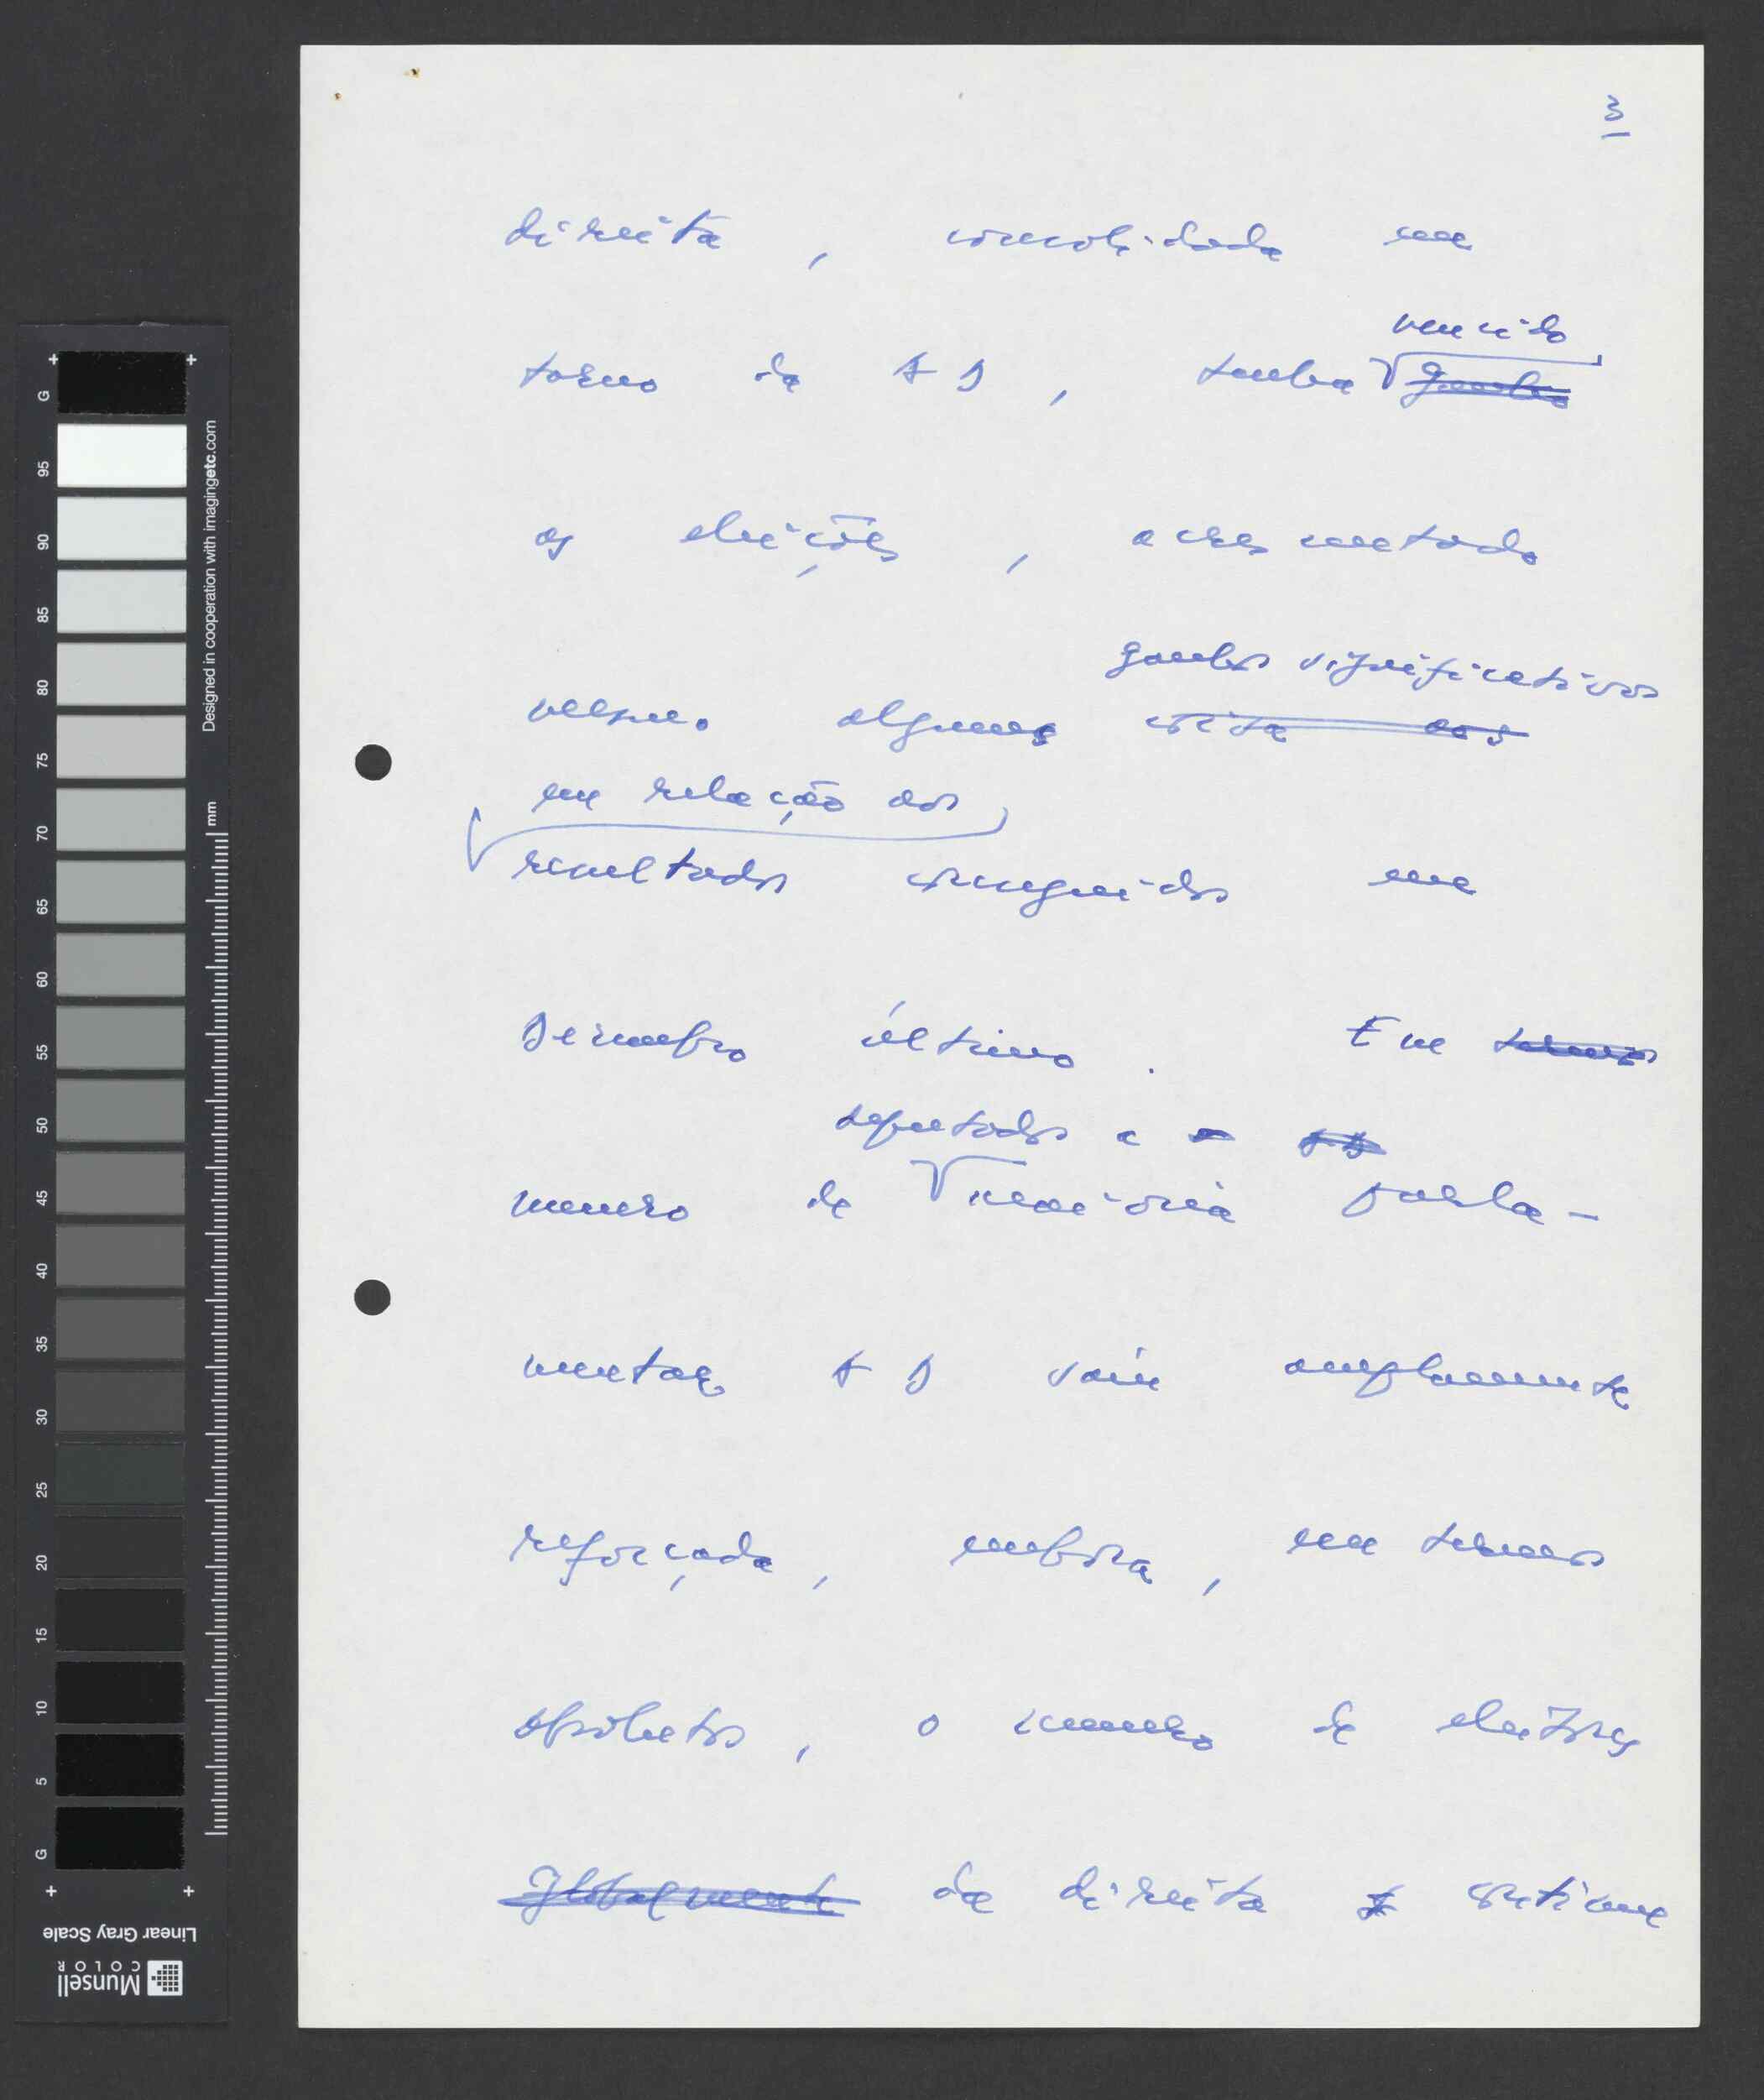 3
direita, consolidada em
vencido
torno da AD, tenha ganho
as eleições, acrescentado
ganhos significativos
mesmo alguns coisa aos
em relação aos
resultados conseguidos em
Dezembro último. Em termos
deputados e a
número de maioria parla-
mentar AD saíu amplamente
reforçada, embora, em termos
absolutos, o número de eleitores
globalmente da direita continue
G 95 90 85 80 75 70 65 60 55 50 45 40 35 30 25 20 15 10 5 G
Designed in cooperation with imagingetc.com
mm
Linear Gray Scale
Munsell
COLOR